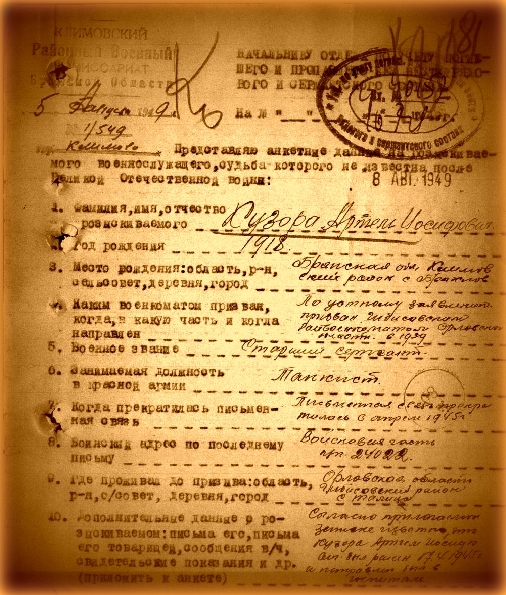 КЛИМОВСКИЙ
Районный Военный
КОМИССАРИАТ
Брянской Области
НАЧАЛЬНИКУ
5 Августа 1949 г.
1/549
Климово
На № "__"
8 АВГ 1949
Представляю анкетные данные на разыскивае-
мого военнослужащего, судьба которого не известна после
Великой Отечественной войны:
1. Фамилия, имя, отчество
разыскиваемого Кузора Артем Иосифович
2. Год рождения 1918.
3. Место рождения: область, р-н,
сельсовет, деревня, город
Брянская обл. Климов
ский район с.
4. Каким военкоматом призван,
когда, в какую часть и когда
направлен
По устному заявлению
призван
Райвоенкоматом Орловской
области в 1939
5. Военное звание Старший сержант.
6. Занимаемая должность
в красной армии Танкист.
7. Когда прекратилась письмен-
ная связь
Письменная связь прекра
тилась в апреле 1945г.
8. Воинский адрес по последнему
письму
Войсковая часть
п/п. 24022.
9. Где проживал до призыва: область,
р-н, с/совет, деревня, город
Орловской области
район
10. Дополнительные данные о ро-
зыскиваемом: письма его, письма
его товарищей, сообщения в/ч,
свидетельские показания и др.
(приложить к анкете)
Согласно
известно, что
Кузора Артем Иосиф
был ранен 17.4.1945г
и направлен был в
госпиталь